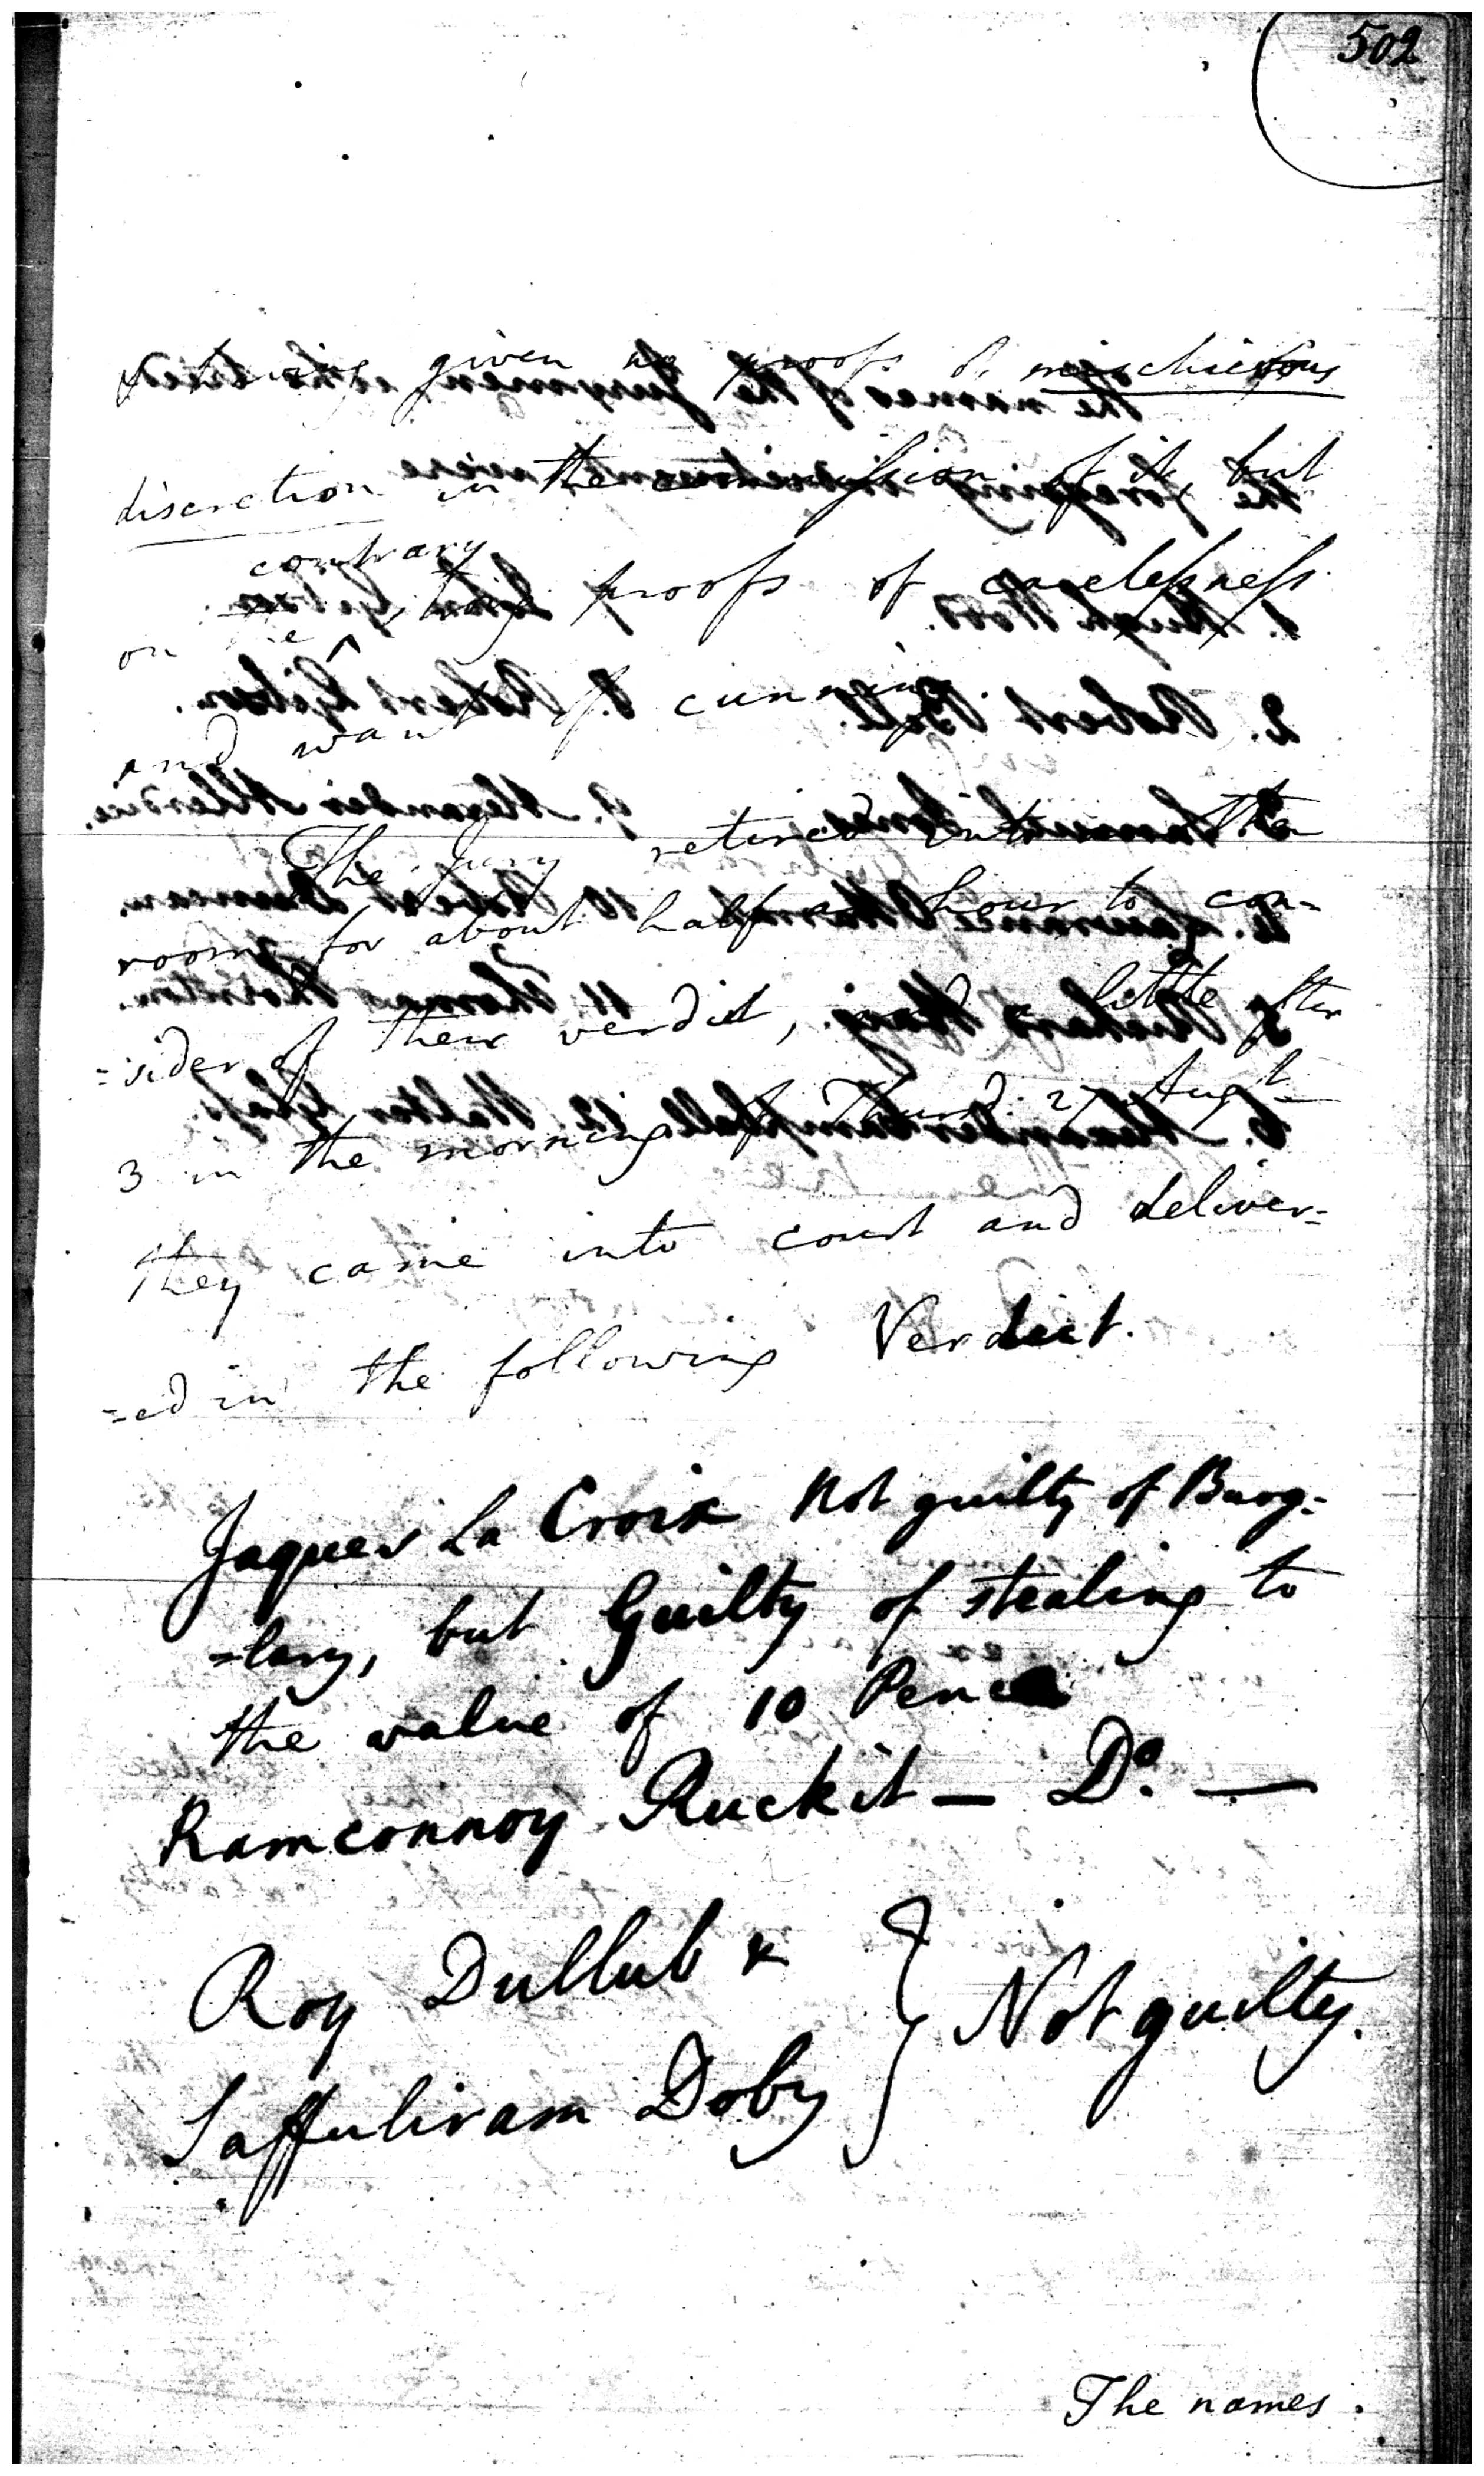 502
given no proofs of mischievous
discretion in the confession of it, but
contrary
on the strong proofs of carelessness
and want of cunning.
The Jury retired into the
room for about half an hour to con=
=sider of their verdict, and a little after
3 in the morning of Thursd: 27 Augt
they came into court and deliver=
=ed in the following Verdict.
Jaques La Croix Not guilty of Burg=
=lary, but Guilty of stealing to
the value of 10 Pence
Ramconnoy Ruckit — Do. —
Roy Dullub &
Saffuliram Doby } Not guilty.
The names